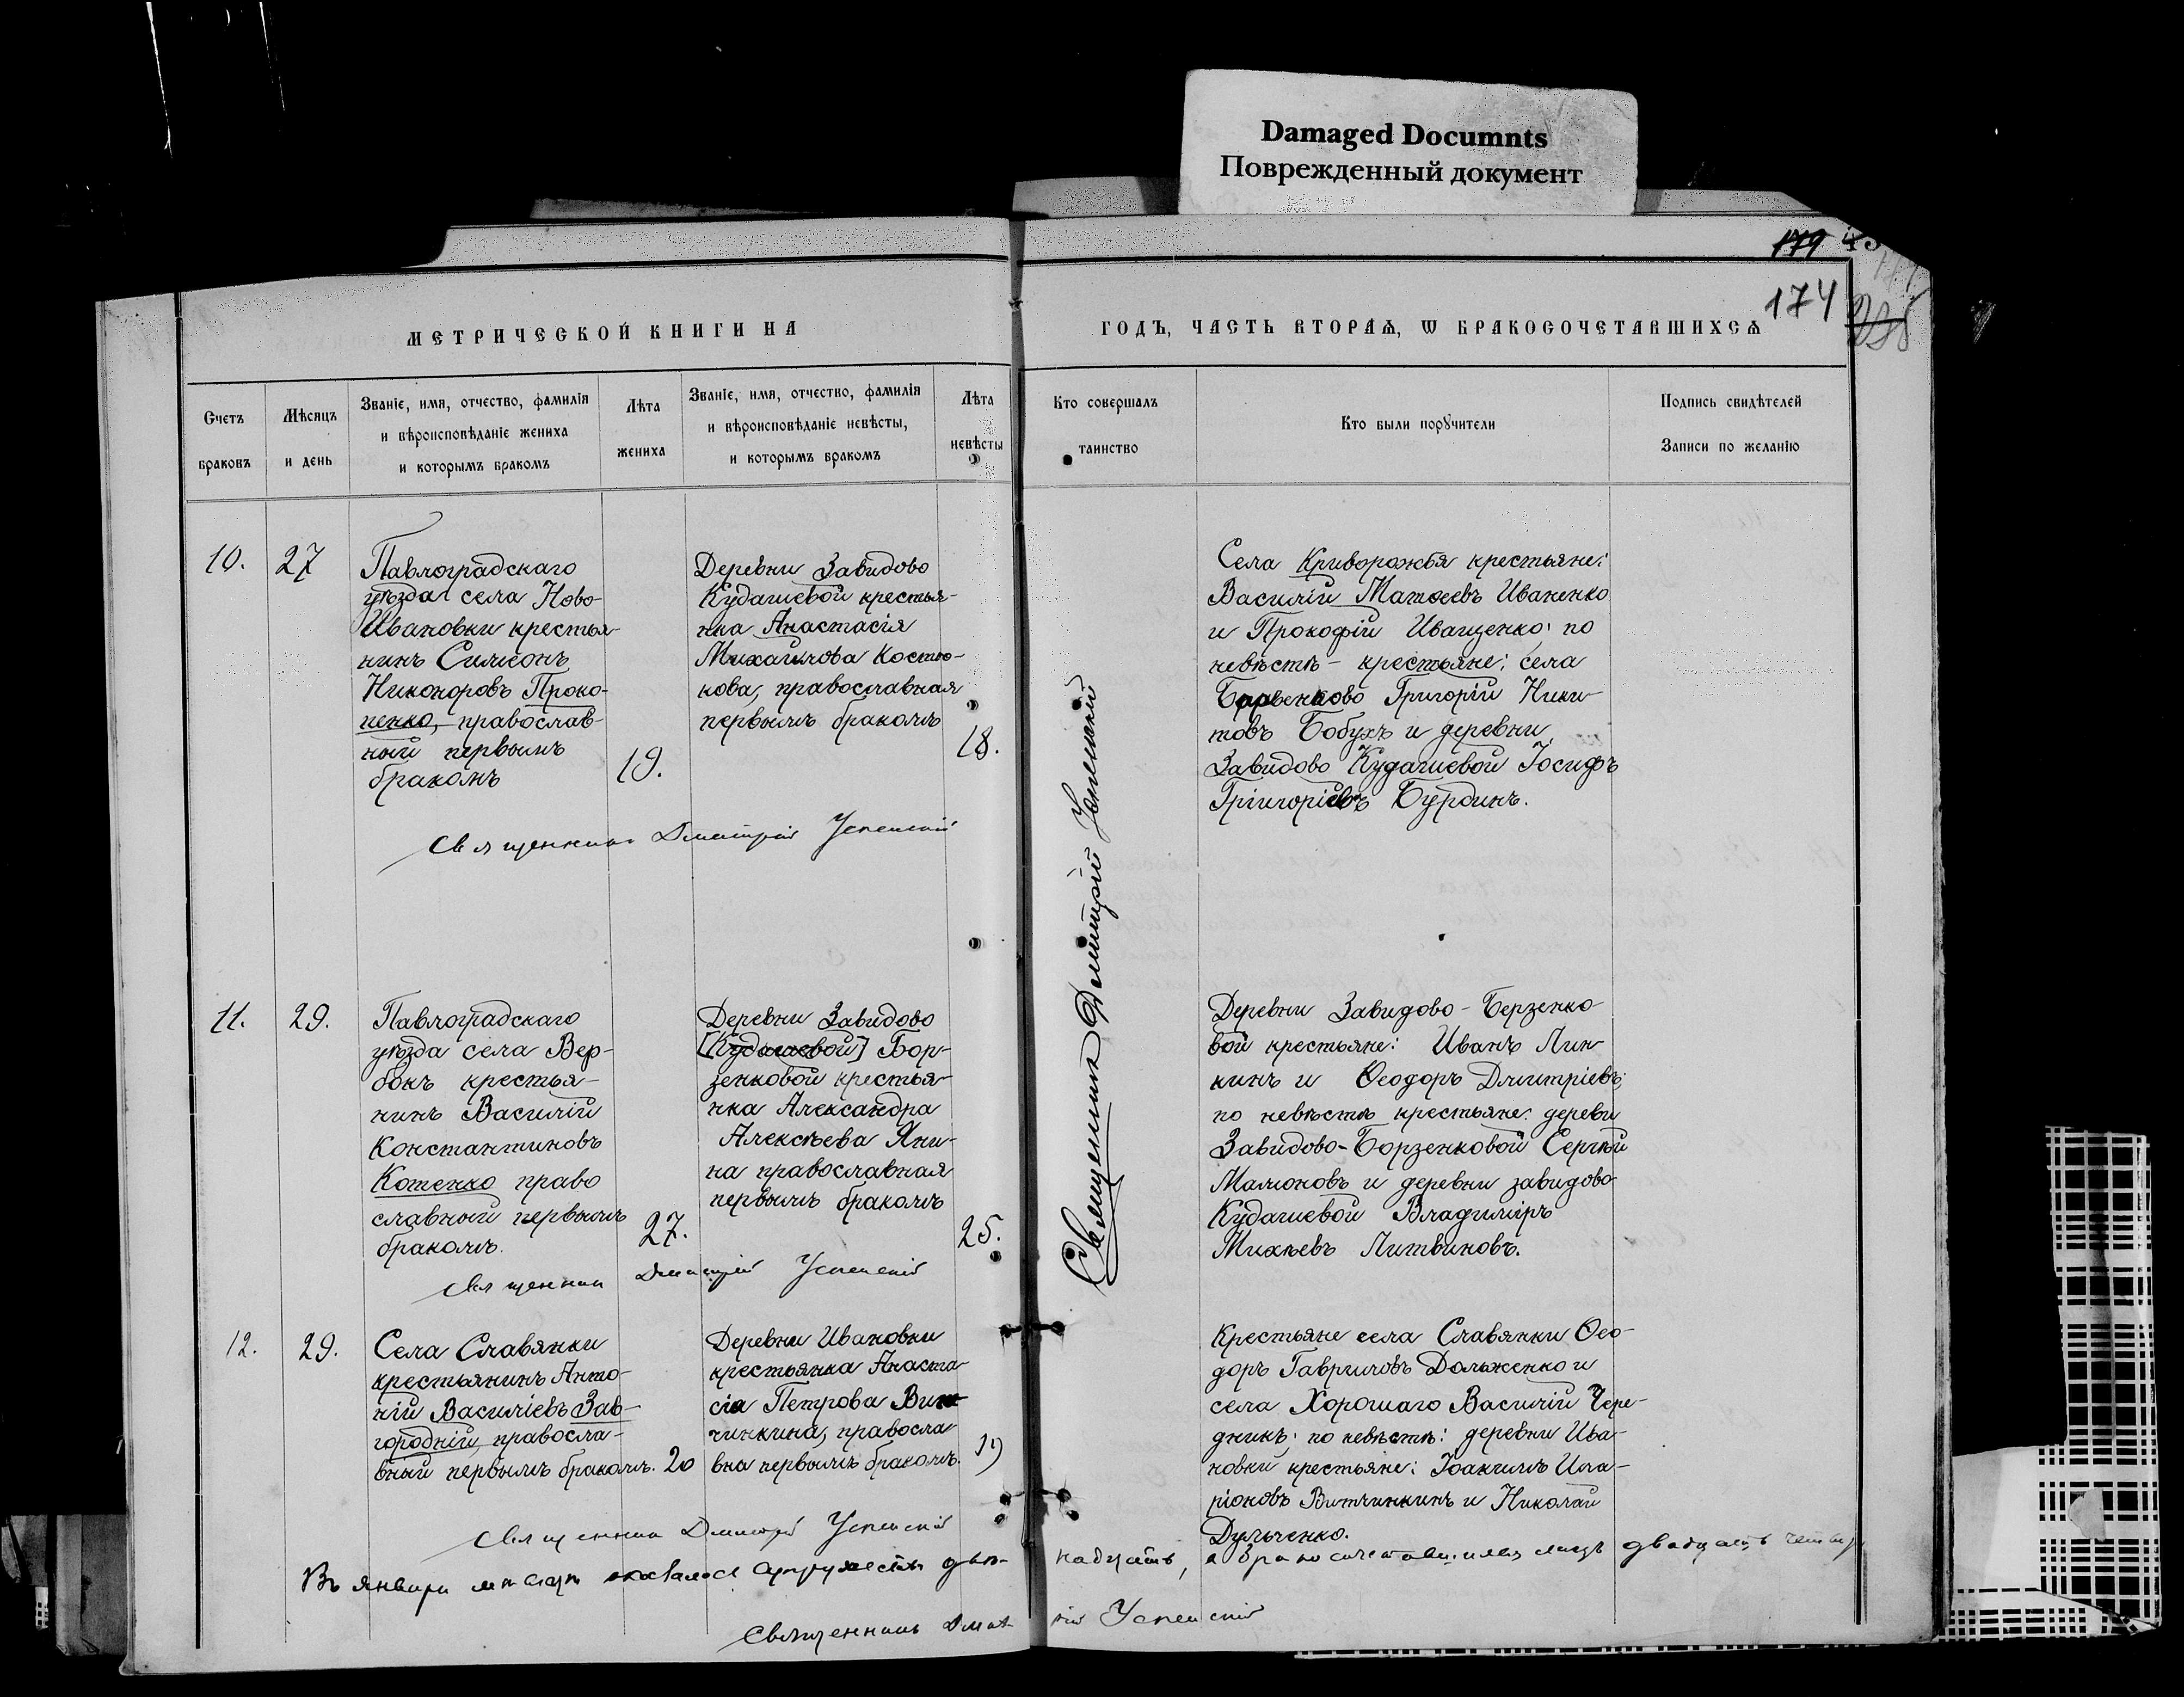 Damaged Documnts
Поврежденный документ
179
174
МЕТРИЧЕСКОЙ КНИГИ НА
ГОДЪ, ЧАСТЬ ВТОРАѦ, Ѡ БРАКОСОЧЕТАВШИХСѦ
Счетъ
браковъ
Мѣсяцъ
и день
Званіе, имя, отчество, фамилія
и вѣроисповѣданіе жениха
и которымъ бракомъ
Лѣта
жениха
Званіе, имя, отчество, фамилія
и вѣроисповѣданіе невѣсты,
и которымъ бракомъ
Лѣта
невѣсты
Кто совершалъ
таинство
Кто были порꙋчители
Подпись свидѣтелей
Записи по желанію
10.
27
Павлоградскаго
уѣзда села Ново-
Ивановки крестья-
нинъ Симеонъ
Никоноровъ Проко-
пенко, православ-
ный первымъ
бракомъ
19.
Деревни Завидово
Кудашевой крестья-
нка Анастасія
Михайлова Костю-
кова, православная
первымъ бракомъ
18.
Священникъ Дмитрій Успенскій
Священникъ Димитрій Успенскій
Села Криворожья крестьяне:
Василій Матѳеевъ Иваненко
и Прокофій Иващенко; по
невѣстѣ - крестьяне: села
Барвенково Григорій Ники-
товъ Бобухъ и деревни
Завидово Кудашевой Іосифъ
Григоріевъ Бурдинъ.
11.
29.
Павлоградскаго
уѣзда села Вер-
бокъ крестья-
нинъ Василій
Константиновъ
Котенко право
славный первымъ
бракомъ.
27.
Деревни Завидово
[Кудашевой] Бор-
зенковой крестья-
нка Александра
Алексѣева Яни-
на православная
первымъ бракомъ
25.
Священник Дмитрій Успенскій
Деревни Завидово-Берзенко-
вой крестьяне: Иванъ Лин-
кинъ и Ѳеодоръ Дмитріевъ;
по невѣстѣ крестьяне: деревни
Завидово-Борзенковой Сергѣй
Мамоновъ и деревни завидово-
Кудашевой Владиміръ
Михѣевъ Литвиновъ.
12.
29.
Села Славянки
крестьянинъ Анто-
ній Василіевъ Зав-
городній, правосла-
вный первымъ бракомъ.
20
Деревни Ивановки
крестьянка Анаста-
сія Петрова Вит
чинкина, правосла
вна первымъ бракомъ.
19
Священник Дмитрій Успенскій
Крестьяне села Славянки Ѳео-
доръ Гавриловъ Долженко и
села Хорошаго Василій Чере-
дникъ; по невѣстѣ: деревни Ива-
новки крестьяне: Іоакимъ Ила-
ріоновъ Витчинкинъ и Николай
Дульченко.
Въ январи мѣсяцѣ супружествъ двѣ- надцать, а бракосочетавшихся лицъ двадцать четыре
Священникъ Дмит- рій Успенскій